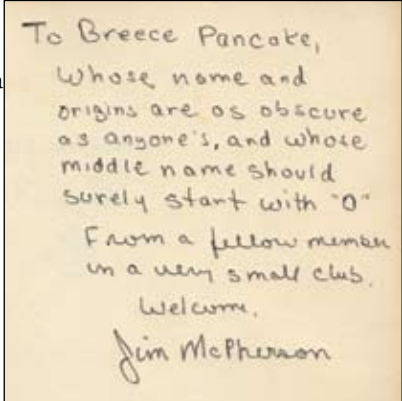 To Breece Pancake,
Whose name and
origins are as obscure
as anyone's, and whose
middle name should
surely start with "O"
From a fellow member
in a very small club.
Welcome.
Jim McPherson